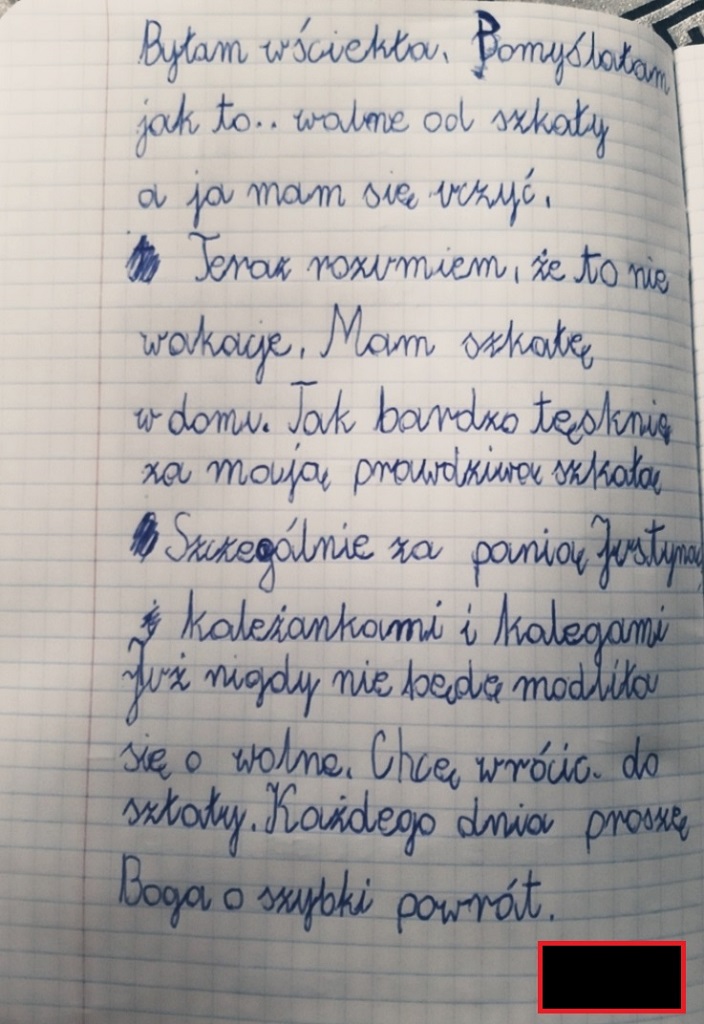 Byłam wściekła. Pomyślałam
jak to.. wolne od szkoły
a ja mam się uczyć.
Teraz rozumiem, że to nie
wakacje. Mam szkołę
w domu. Tak bardzo tęsknię
za moją prawdziwą szkołą
Szczególnie za panią Justyną
koleżankami i kolegami
Już nigdy nie będę modliła
się o wolne. Chcę wrócic. do
szkoły. Każdego dnia proszę
Boga o szybki powrót.